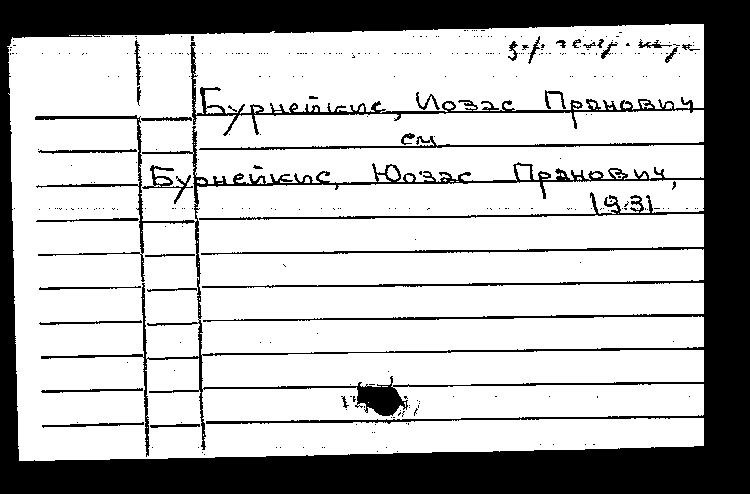 Бурнейкис, Иозас Пранович
см.
Бурнейкис, Юозас Пранович,
1931